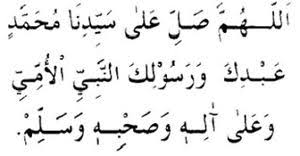 اَللّٰهُمَّ صَلِّ عَلٰى سَيِّدِنَا مُحَمَّدٍ
عَبْدِكَ وَرَسُوْلِكَ النَّبِيِّ الْأُمِّيِّ
وَعَلٰى آلِهٖ وَصَحْبِهٖ وَسَلِّمْ.